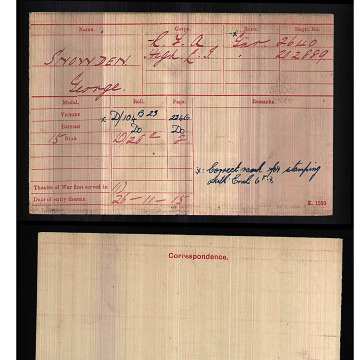 Name. Corps. Rank. Regtl. No.
R. F. A. Gnr 2640
SNOWDEN
George.
Medal. Roll. Page. Remarks.
Victory D/104 B 23 2266
British Do Do
15 Star D 28 c 2
x: Correct rank for stamping
Theatre of War first served in (1)
Date of entry therein 26-11-15
K. 1380
Correspondence.